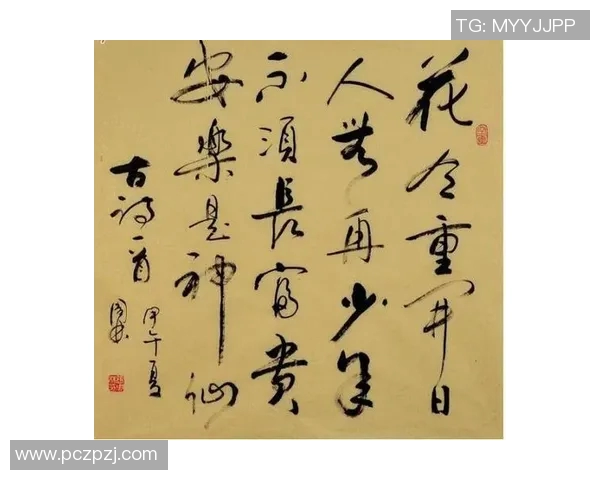 TG: MYYJJPP
花有重開日
人無再少年
不須長富貴
安樂是神仙
古詩一首
甲午夏
www.pczpzj.com